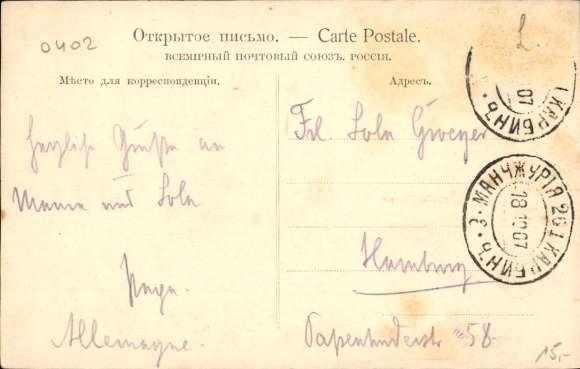 0402
Открытое письмо. — Carte Postale.
ВСЕМІРНЫЙ ПОЧТОВЫЙ СОЮЗЪ. РОССІЯ.
Мѣсто для корреспонденціи.
Адресъ.
Herzliche Grüße an
Mama und Lola
Papa.
Allemagne.
Frl. Lola Groeger
Hamburg
Papenhuderstr 58
07
ХАРБИНЪ
3 · МАНЧЖУРІЯ 261 ХАРБИНЪ ·
18.10.07
15,-